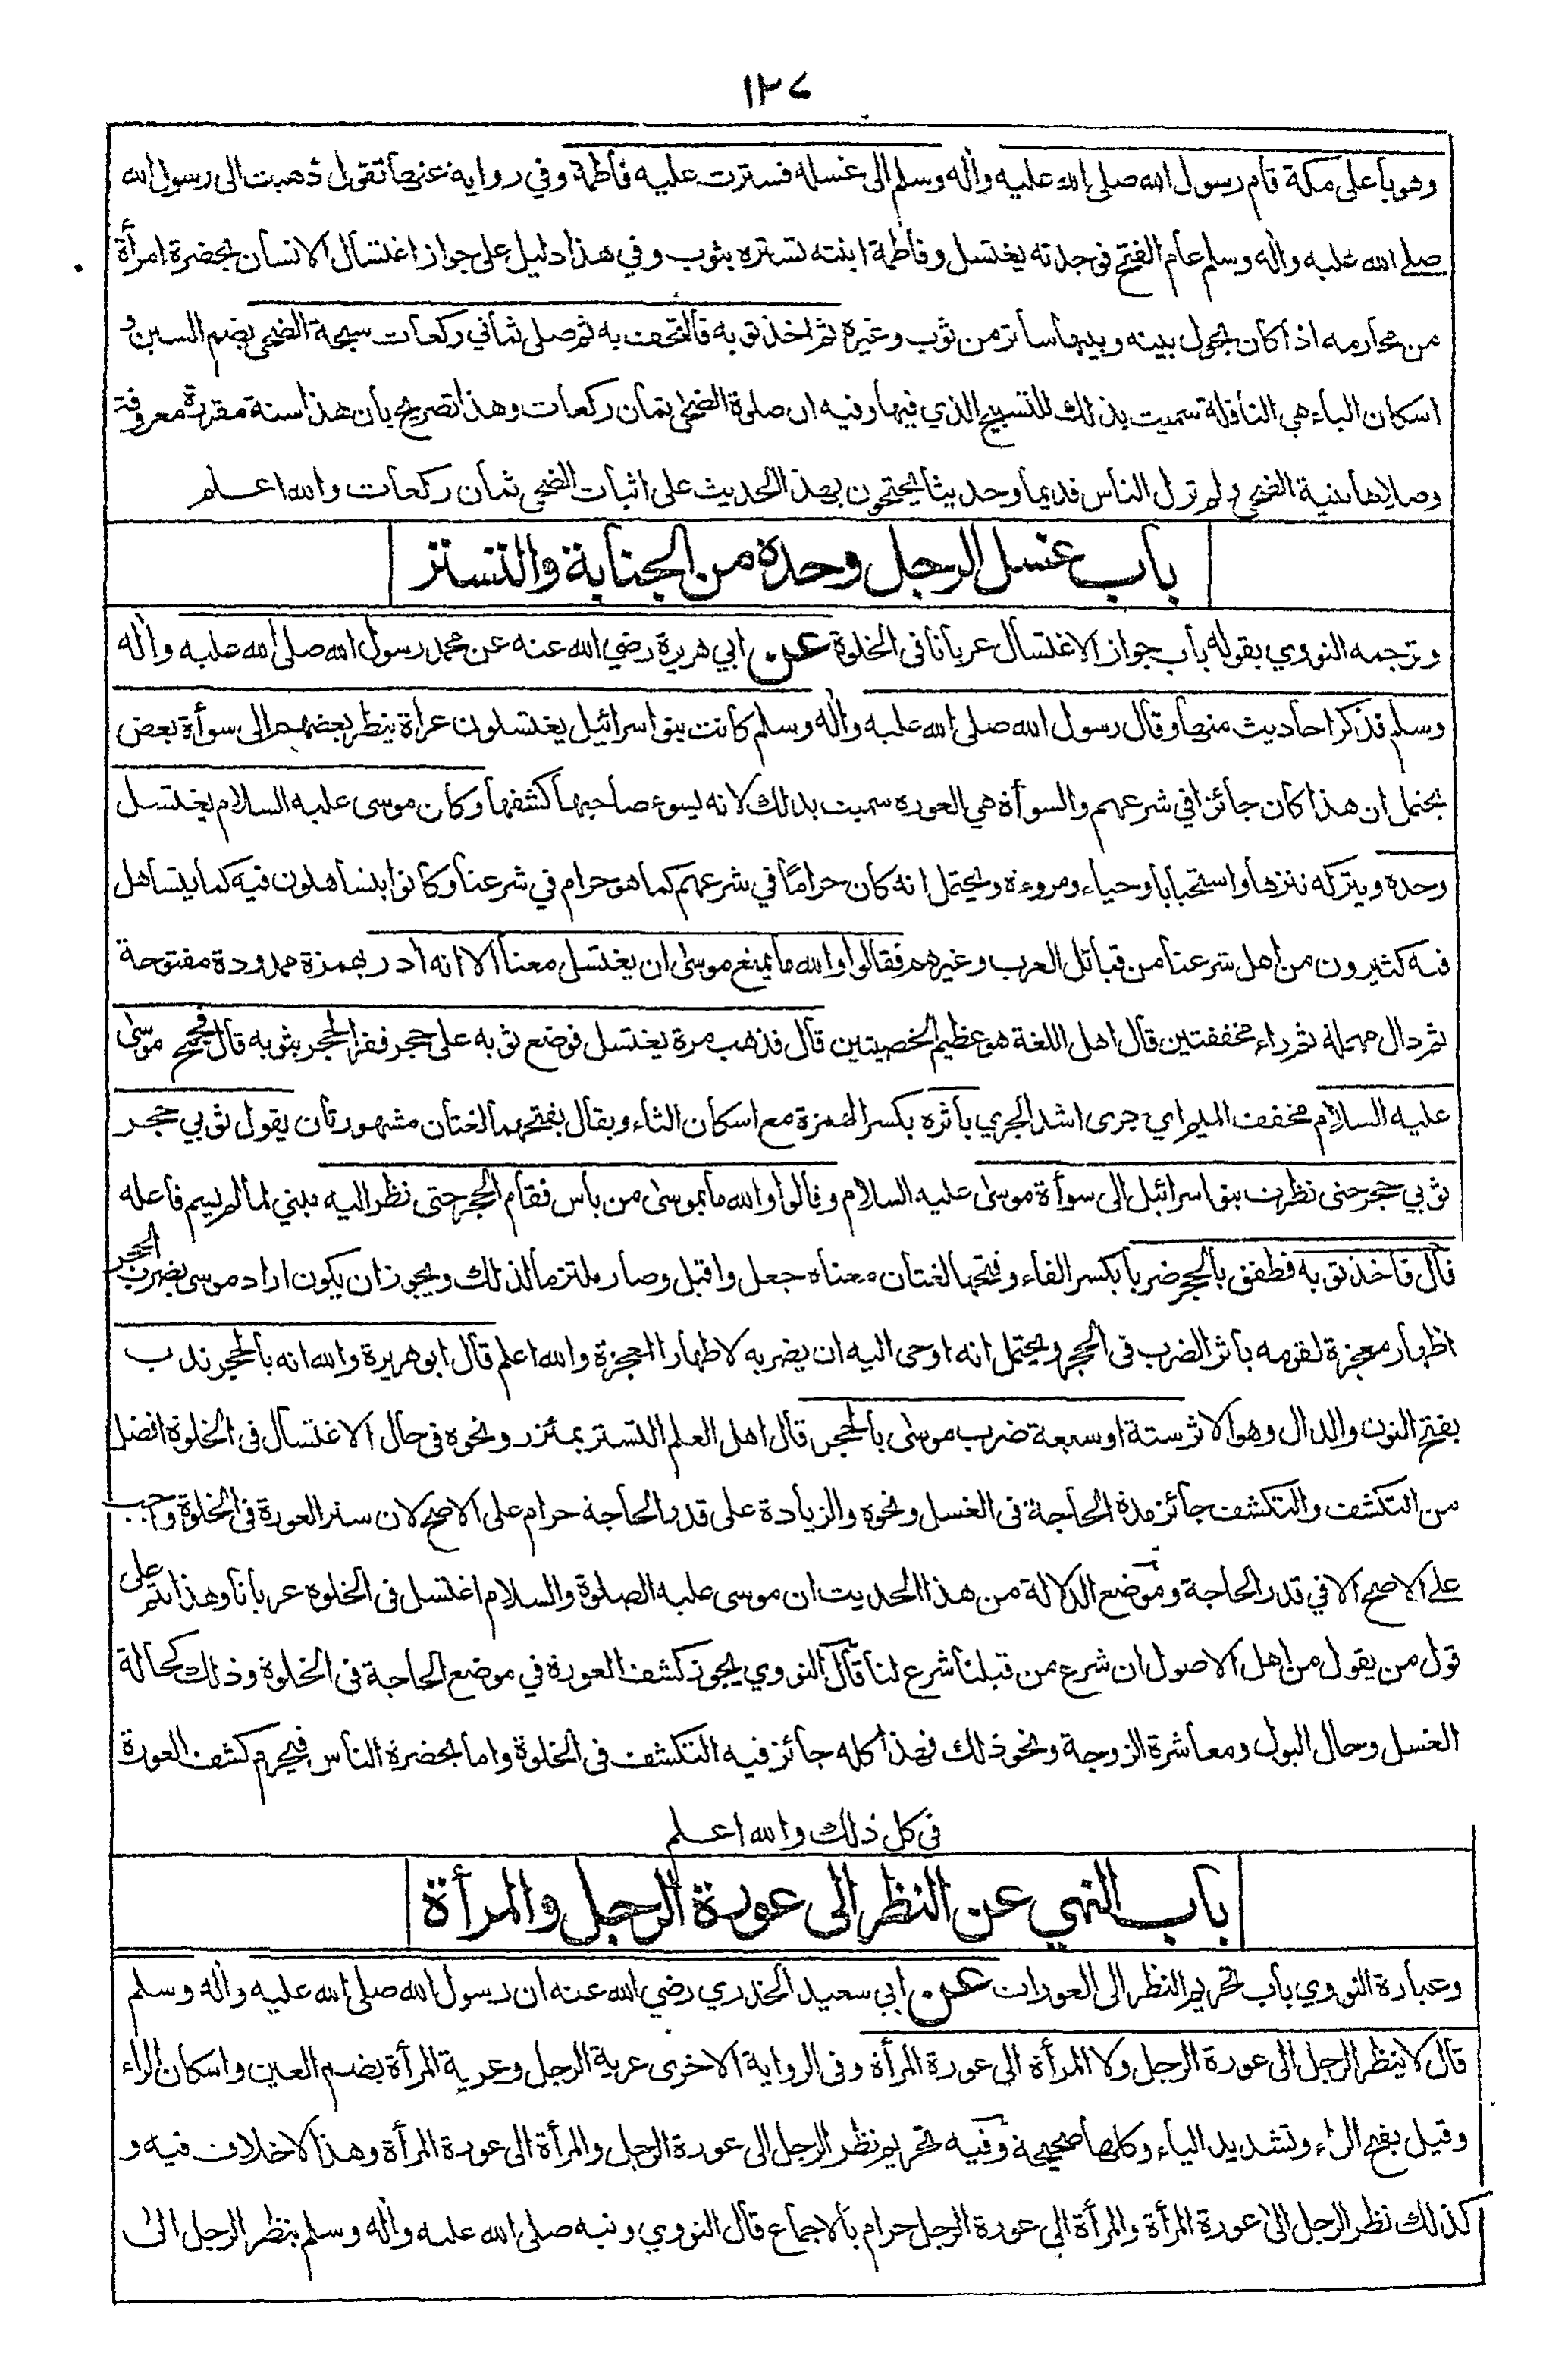 ١٢٧
وهو بأعلى مكة قام رسول الله صلى الله عليه وأله وسلم الى غسله فسترت عليه فاطمة وفي رواية عنها تقول ذهبت الى رسول الله
صلى الله عليه واله وسلم عام الفتح فوجدته يغتسل وفاطمة ابنته تستره بثوب وفي هذا دليل على جواز اغتسال الانسان بحضرة امرأة
من محارمه اذا كان يحول بينه وبينها ساتر من ثوب وغيره ثم اخذ ثوبه فالتحف به ثم صلى ثماني ركعات سبحة الضحى بضم السين و
اسكان الباء هي النافلة سميت بذلك للتسبيح الذي فيها وفيه ان صلوة الضحى ثمان ركعات وهذا تصريح بأن هذا سنة مقررة معروفة
وصلاها بنية الضحى ولم تزل الناس قديما وحديثا يحتجون بهذا الحديث على اثبات الضحى ثمان ركعات والله اعلم
باب غسل الرجل وحده من الجنابة والتستر
وترجمه النووي بقوله باب جواز الاغتسال عريانا في الخلوة عن ابي هريرة رضي الله عنه عن محمد رسول الله صلى الله عليه وأله
وسلم فذكر احاديث منها وقال رسول الله صلى الله عليه وأله وسلم كانت بنو اسرائيل يغتسلون عراة ينظر بعضهم الى سوأة بعض
يحتمل ان هذا كان جائزا في شرعهم والسوأة هي العورة سميت بذلك لانه يسوء صاحبها كشفها وكان موسى عليه السلام يغتسل
وحده ويتركه تنزها واستحبابا وحياء ومروءة ويحتمل انه كان حرامًا في شرعهم كما هو حرام في شرعنا وكانوا يتساهلون فيه كما يتساهل
فيه كثيرون من اهل شرعنا من قبائل العرب وغيرهم فقالوا والله ما يمنع موسى ان يغتسل معنا الا انه أدر بهمزة ممدودة مفتوحة
ثم دال مهملة ثم راء مخففتين قال اهل اللغة هو عظيم الخصيتين قال فذهب مرة يغتسل فوضع ثوبه على حجر ففر الحجر بثوبه قال فجمح موسى
عليه السلام مخفف الميم اي جرى اشد الجري بأثره بكسر الهمزة مع اسكان الثاء ويقال بفتحهما لغتان مشهورتان يقول ثوبي حجر
ثوبي حجر حتى نظرت بنو اسرائيل الى سوأة موسى عليه السلام وقالوا والله ما بموسى من بأس فقام الحجر حتى نظر اليه مبني لما لم يسم فاعله
قال فأخذ ثوبه فطفق بالحجر ضربا بكسر الفاء وفتحها لغتان معناه جعل واقبل وصار ملتزما لذلك ويجوز ان يكون اراد موسى بضرب الحجر
اظهار معجزة لقومه بأثر الضرب في الحجر ويحتمل انه اوحى اليه ان يضربه لاظهار المعجزة والله اعلم قال ابو هريرة والله انه بالحجر ندب
بفتح النون والدال وهو الاثر ستة او سبعة ضرب موسى بالحجر قال اهل العلم التستر بمئزر ونحوه في حال الاغتسال في الخلوة افضل
من التكشف والتكشف جائز مدة الحاجة في الغسل ونحوه والزيادة على قدر الحاجة حرام على الاصح لان ستر العورة في الخلوة واجب
على الاصح الا في قدر الحاجة وموضع الدلالة من هذا الحديث ان موسى عليه الصلوة والسلام اغتسل في الخلوة عريانا وهذا يتم على
قول من يقول من اهل الاصول ان شرع من قبلنا شرع لنا قال النووي يجوز كشف العورة في موضع الحاجة في الخلوة وذلك كحالة
الغسل وحال البول ومعاشرة الزوجة ونحو ذلك فهذا كله جائز فيه التكشف في الخلوة واما بحضرة الناس فيحرم كشف العورة
في كل ذلك والله اعلم
باب النهي عن النظر الى عورة الرجل والمرأة
وعبارة النووي باب تحريم النظر الى العورات عن ابي سعيد الخدري رضي الله عنه ان رسول الله صلى الله عليه وأله وسلم
قال لا ينظر الرجل الى عورة الرجل ولا المرأة الى عورة المرأة وفي الرواية الاخرى عرية الرجل وعرية المرأة بضم العين واسكان الراء
وقيل بفتح الراء وتشديد الياء وكلها صحيحة وفيه تحريم نظر الرجل الى عورة الرجل والمرأة الى عورة المرأة وهذا لا خلاف فيه و
كذلك نظر الرجل الى عورة المرأة والمرأة الى عورة الرجل حرام بالاجماع قال النووي ونبه صلى الله عليه وأله وسلم بنظر الرجل الى